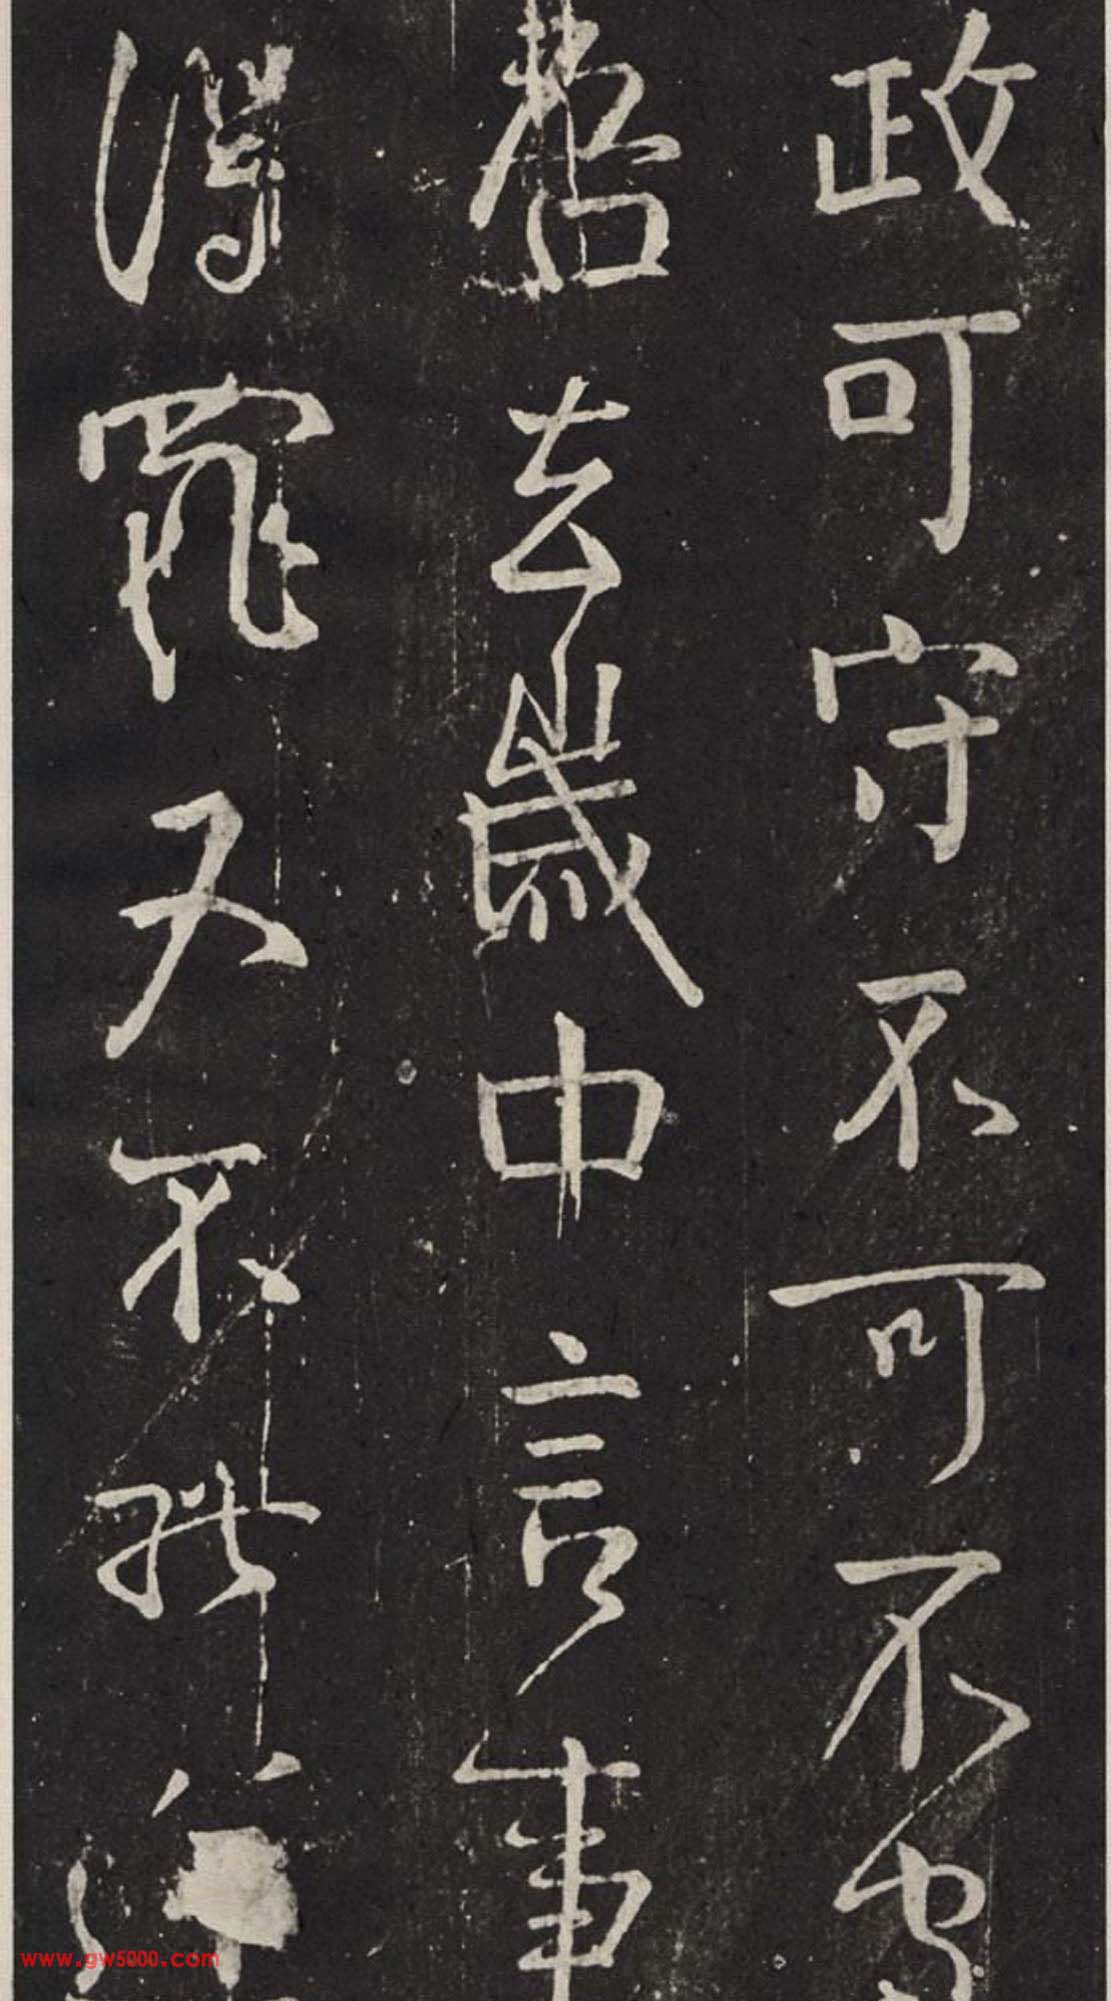 政可守不可不守
吾去歲中言事
得罪又不能
www.gw5000.com